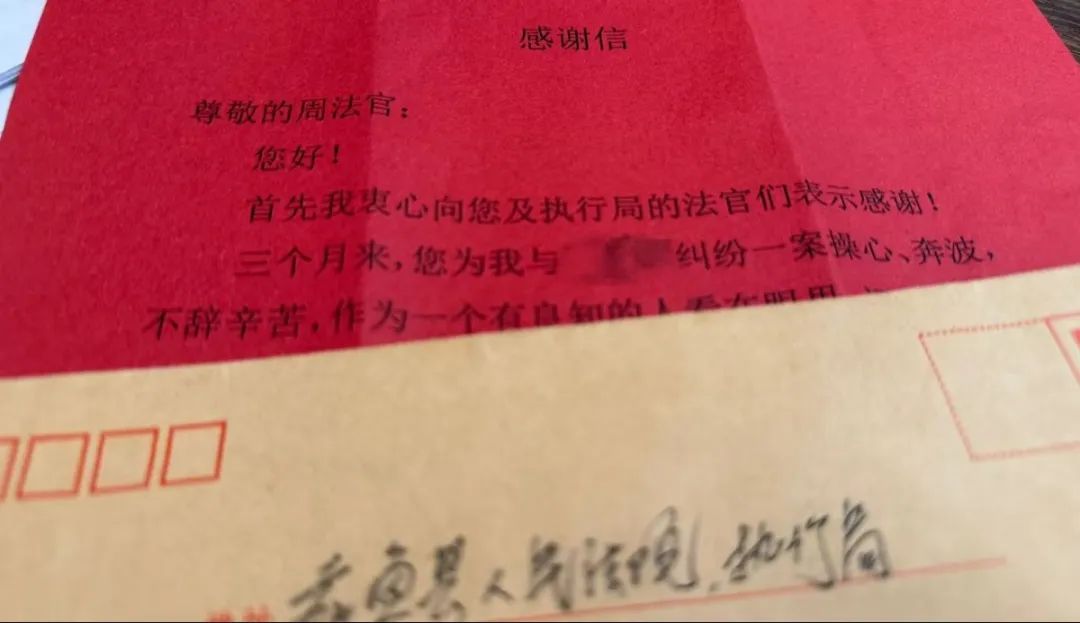 感谢信
尊敬的周法官：
您好！
首先我衷心向您及执行局的法官们表示感谢！
三个月来，您为我与 纠纷一案操心、奔波，
不辞辛苦，作为一个有良知的人看在眼里
县人民法院执行局